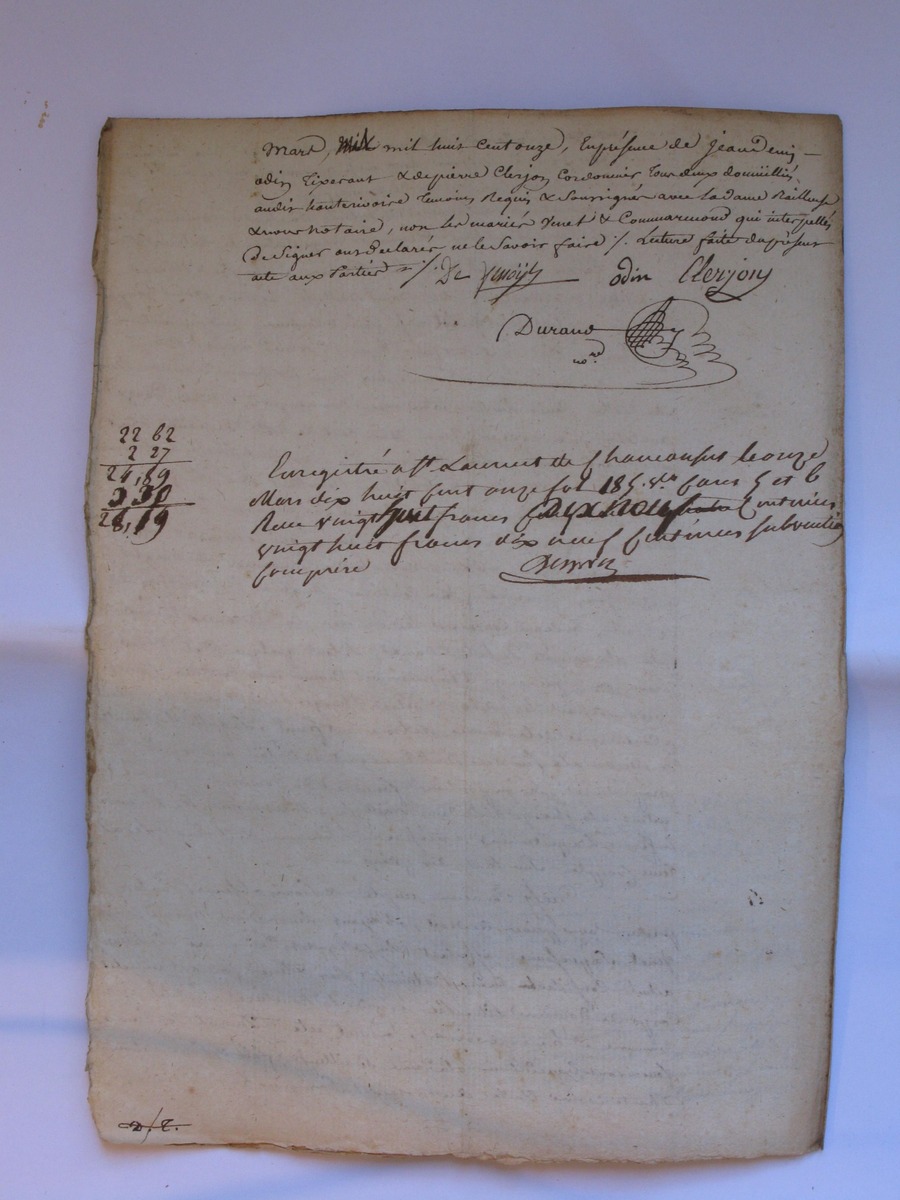 Mars, mil mil huit cent onze, En présence de Jean Denis
odin Tixerant & de pierre Clerjon Cordonnier Tous deux domiciliés
audit hauterivoire Temoins Requis & Soussignés avec la dame
& nous Notaire, non les mariés & Commarmond qui interpellés
de Signer ont declarés ne le Savoir faire ./. Lecture faite du présent
acte aux Parties ./. De odin Clerjon
Durand
nore
22 62
2 27
24,89
3 30
28,19
Enregistré a St Laurent de Chamousset le onze
Mars dix huit cent onze fol 185. vo cases 5 et 6
Recu vingt huit francs dix neuf Centimes
vingt huit francs dix neuf Centimes subvention
comprise
D. / T.